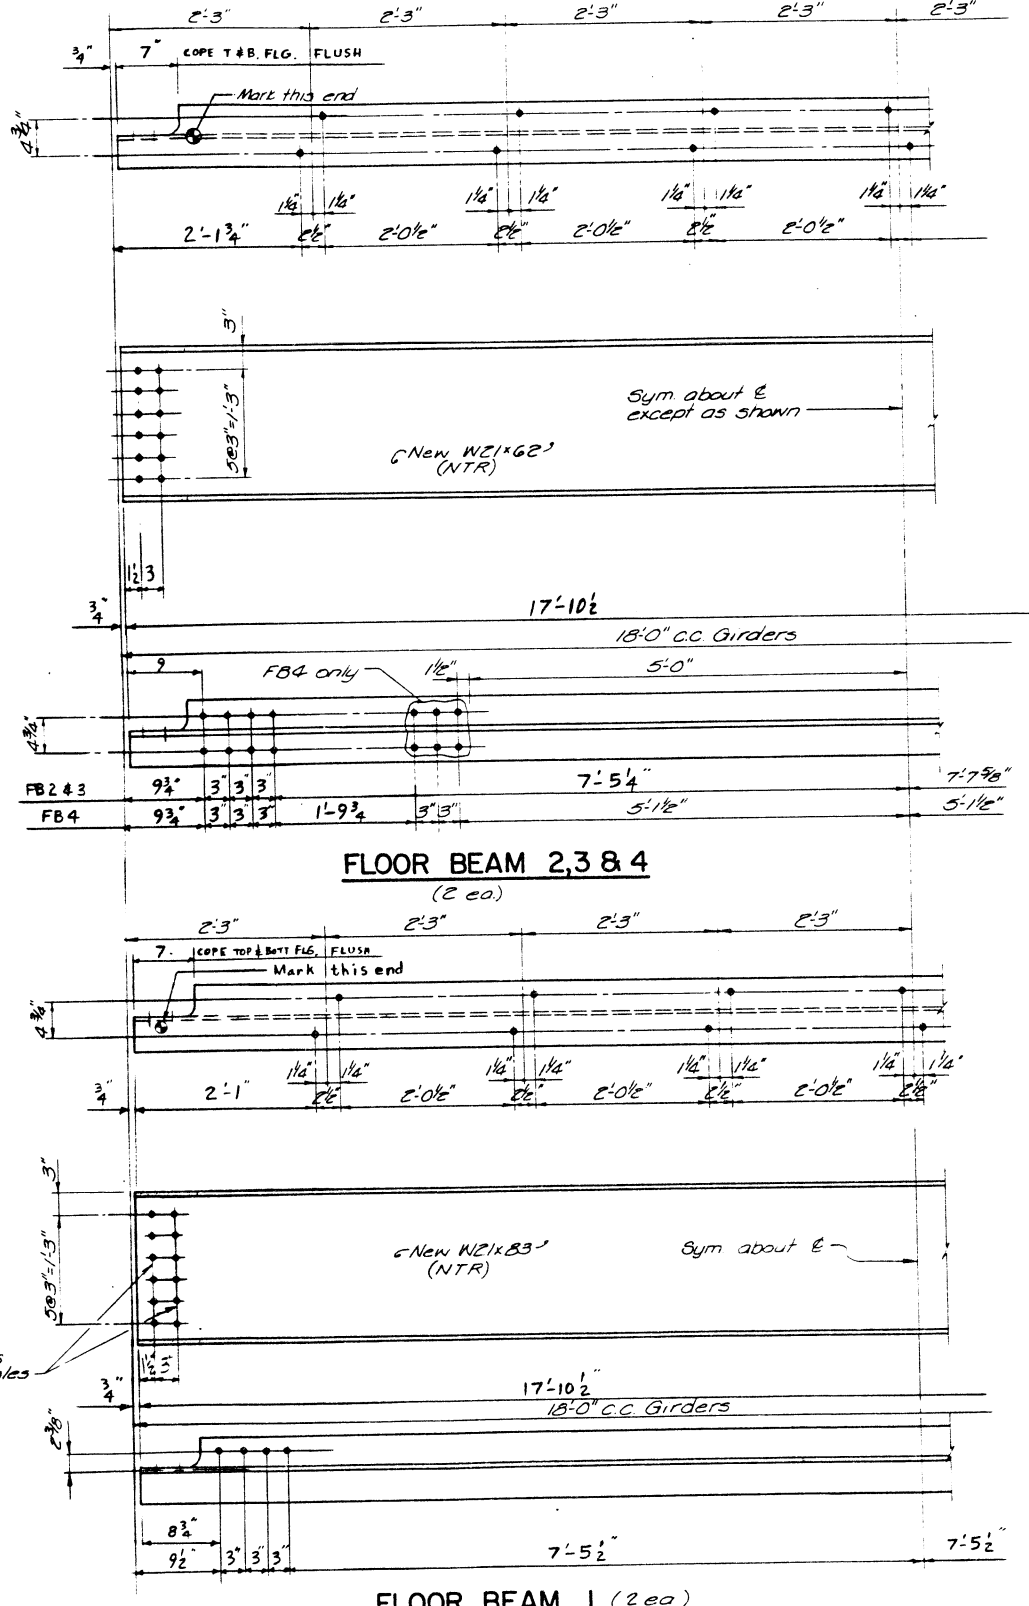 2'-3" 2'-3" 2'-3" 2'-3" 2'-3"
3/4" 7" COPE T & B. FLG. FLUSH
Mark this end
4 3/4"
1 1/4" 1 1/4" 1 1/4" 1 1/4" 1 1/4" 1 1/4" 1 1/4" 1 1/4"
2'-1 3/4" 2 1/2" 2'-0 1/2" 2 1/2" 2'-0 1/2" 2 1/2" 2'-0 1/2"
3"
5@3"=1'-3"
Sym. about ℄
except as shown
New W21x62
(NTR)
1 1/2 3
3/4" 17'-10 1/2
18'-0" c.c. Girders
9 FB4 only 1 1/2" 5'-0"
4 3/4"
FB 2 & 3 9 3/4" 3" 3" 3" 7'-5 1/4" 7'-7 5/8"
FB 4 9 3/4" 3" 3" 3" 1'-9 3/4 3" 3" 5'-1 1/2" 5'-1 1/2"
FLOOR BEAM 2,3 & 4
(2 ea.)
2'-3" 2'-3" 2'-3" 2'-3"
7. COPE TOP & BOTT FLG. FLUSH
Mark this end
4 3/4"
1 1/4" 1 1/4" 1 1/4" 1 1/4" 1 1/4" 1 1/4" 1 1/4" 1 1/4"
3/4" 2'-1" 2 1/2" 2'-0 1/2" 2 1/2" 2'-0 1/2" 2 1/2" 2'-0 1/2" 2 1/2"
3"
5@3"=1'-3"
New W21x83
(NTR)
Sym. about ℄
1 1/2 3"
3/4" 17'-10 1/2"
18'-0" c.c. Girders
2 3/8"
8 3/4"
9 1/2" 3" 3" 3" 7'-5 1/2" 7'-5 1/2"
FLOOR BEAM 1 (2 ea)